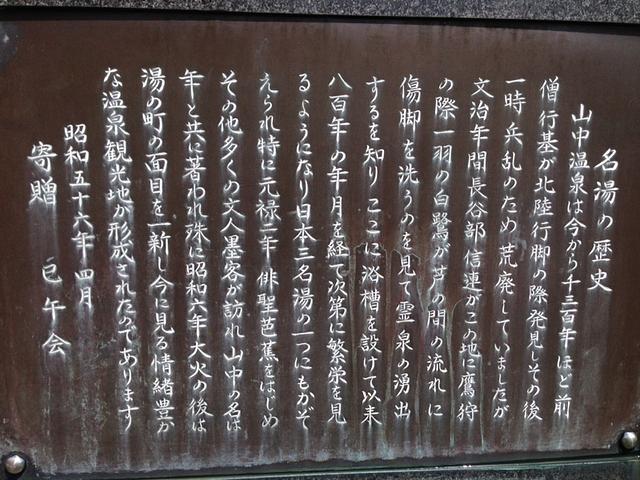 名湯の歴史
山中温泉は今から千三百年ほど前
僧行基が北陸行脚の際発見しその後
一時兵乱のため荒廃していましたが
文治年間長谷部信連がこの地に鷹狩
の際一羽の白鷺が芦の間の流れに
傷脚を洗うのを見て霊泉の湧出
するを知りここに浴槽を設けて以来
八百年の年月を経て次第に繁栄を見
るようになり日本三名湯の一つにもかぞ
えられ特に元禄二年俳聖芭蕉をはじめ
その他多くの文人墨客が訪れ山中の名は
年と共に著われ殊に昭和六年大火の後は
湯の町の面目を一新し今に見る情緒豊か
な温泉観光地が形成されたのであります
昭和五十六年四月
寄贈 巳午会